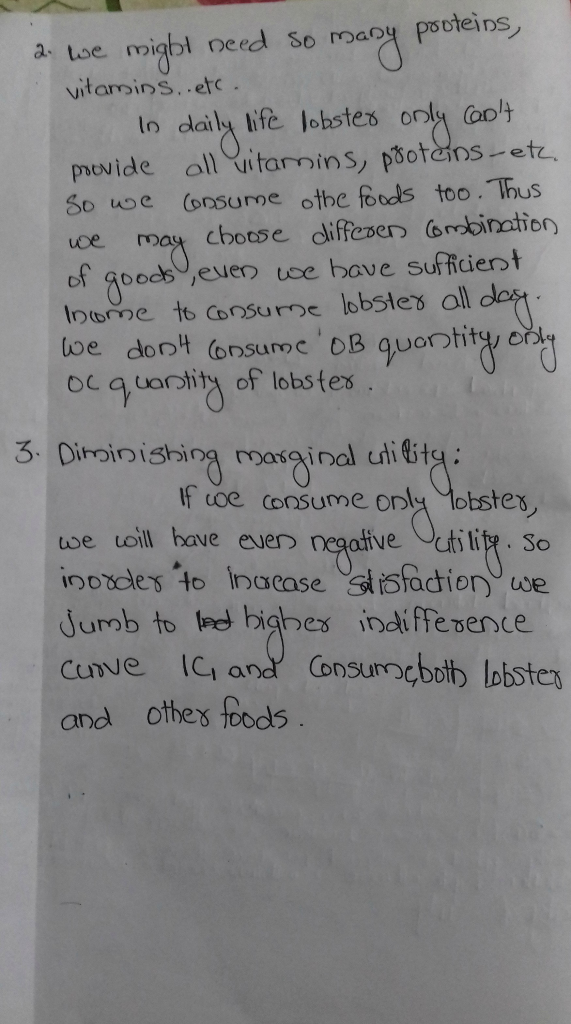 2. we might need so many proteins,
vitamins...etc.
In daily life lobster only can't
provide all vitamins, proteins-etc.
So we consume othe foods too. Thus
we may choose differen combination
of goods, even we have sufficient
Income to consume lobster all day.
We don't consume OB quantity, only
OC quantity of lobster.
3. Diminishing marginal utility:
If we consume only lobster,
we will have even negative utility. So
inorder to increase satisfaction we
jumb to higher indifference
curve IC1 and consume both lobster
and other foods.